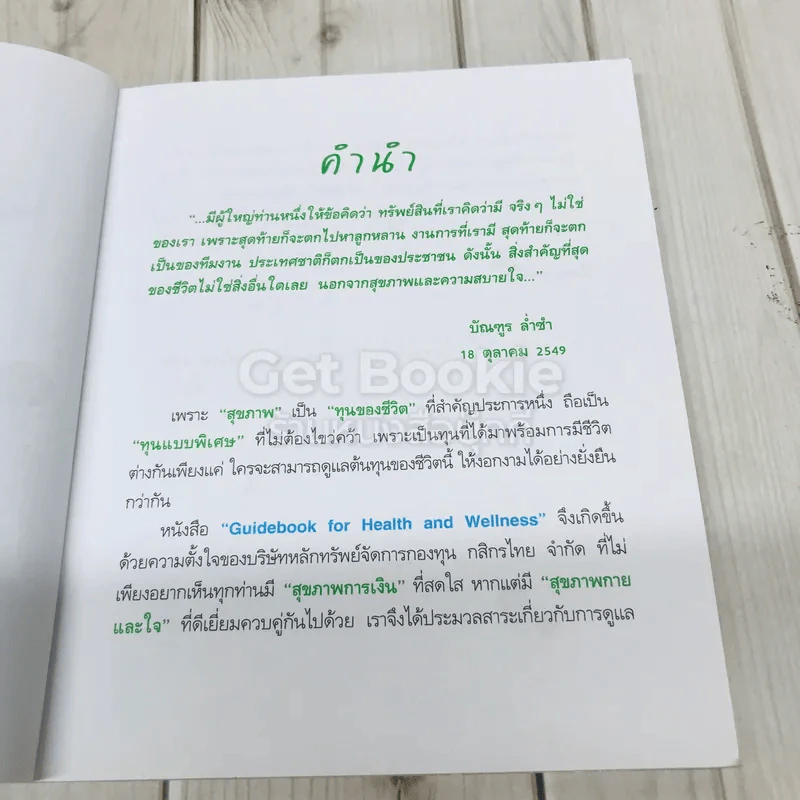 คำนำ
"...มีผู้ใหญ่ท่านหนึ่งให้ข้อคิดว่า ทรัพย์สินที่เราคิดว่ามี จริงๆ ไม่ใช่
ของเรา เพราะสุดท้ายก็จะตกไปหาลูกหลาน งานการที่เรามี สุดท้ายก็จะตก
เป็นของทีมงาน ประเทศชาติก็ตกเป็นของประชาชน ดังนั้น สิ่งสำคัญที่สุด
ของชีวิตไม่ใช่สิ่งอื่นใดเลย นอกจากสุขภาพและความสบายใจ..."
บัณฑูร ล่ำซำ
18 ตุลาคม 2549
Get Bookie
เพราะ "สุขภาพ" เป็น "ทุนของชีวิต" ที่สำคัญประการหนึ่ง ถือเป็น
"ทุนแบบพิเศษ" ที่ไม่ต้องไขว่คว้า เพราะเป็นทุนที่ได้มาพร้อมการมีชีวิต
ต่างกันเพียงแค่ ใครจะสามารถดูแลต้นทุนของชีวิตนี้ ให้งอกงามได้อย่างยั่งยืน
กว่ากัน
หนังสือ "Guidebook for Health and Wellness" จึงเกิดขึ้น
ด้วยความตั้งใจของบริษัทหลักทรัพย์จัดการกองทุน กสิกรไทย จำกัด ที่ไม่
เพียงอยากเห็นทุกท่านมี "สุขภาพการเงิน" ที่สดใส หากแต่มี "สุขภาพกาย
และใจ" ที่ดีเยี่ยมควบคู่กันไปด้วย เราจึงได้ประมวลสาระเกี่ยวกับการดูแล